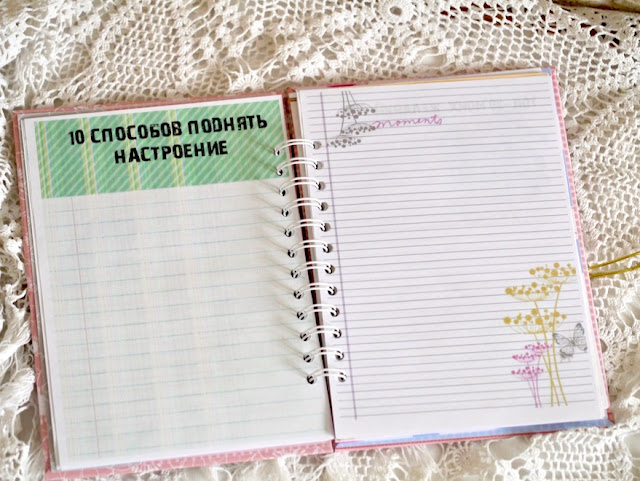 10 СПОСОБОВ ПОДНЯТЬ
НАСТРОЕНИЕ
moments